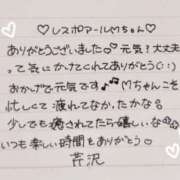 ♡レスポアールMちゃん♡
ありがとうございました♡元気？大丈夫
って気にかけてくれてありがとう(:)
おかげで元気です♪Mちゃんこそ
忙しくて疲れてなかたかな？
少しでも癒されてたら嬉しいな
いつも楽しい時間をありがとう♡
芹沢